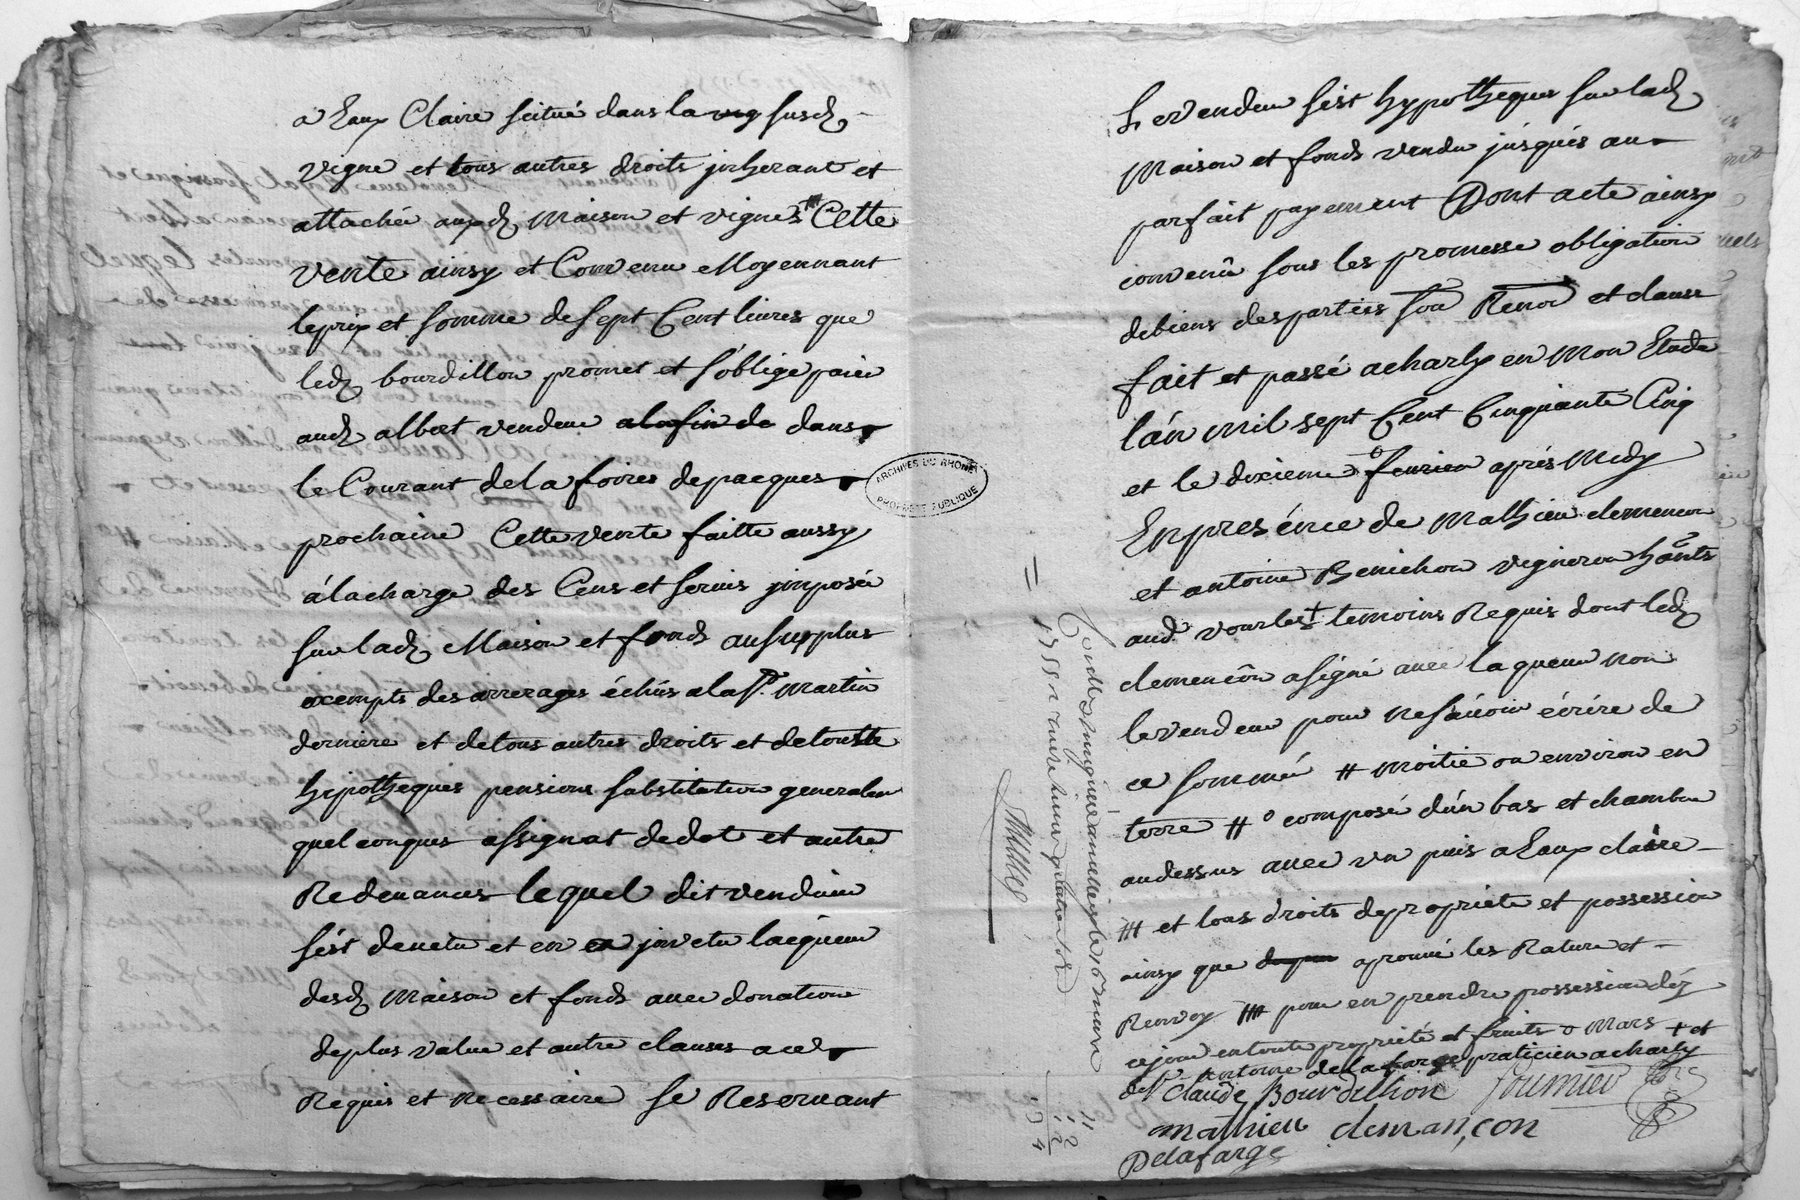 a Eaux Claire scitué dans la susd
vigne et tous autres droits jnherant et
attachée auxd Maison et vignes Cette
vente ainsy et Convenu Moyennant
leprix et somme desept Cent livres que
led bourdillon promet et soblige paier
aud albert vendeur alafin de dans
le Courant dela foires depacques
prochaine Cette vente faitte aussy
àlacharge des Cens et servis jmposée
sur lad Maison et fonds au surplus
exempts des arrerages échûs ala St. Martin
derniere et detous autres droits et detoutte
hipotheques pensions substitution generalem
quelconques assignat dedot et autre
Redevances lequel dit vendeur
sést devetu et en jnvetu lacquereur
desd Maison et fonds avec donation
deplus value et autre clauses ace
Requis et necessaire se Reservant
Le vendeur sést hypotheques sur lad
Maison et fonds vendu jùsqués au
parfait payement Dont acte ainsy
convenû sous les promesse obligation
debiens desparties sou Renon et clause
fait et passé acharly en mon Etude
lán mil sept Cent Cinquante Cinq
et le dixieme fevrier aprés midy
Enpresénce de Mathieu clemencon
et antoine Benichon vigneron hants
aud vourles + temoins Requis dont led
clemencôn a signé avec laquereur non
levendeur pour ne sávoir écrire de
ce sommé # moitie ou environ en
terre #° composé dún bas et chambre
audessus avec un puis a Eaux claire
et tous droits depropriete et possession
ainsy que aprouvé les Rature et
Renvoy pour en prendre possession déz
cejour entoute propriété et fruits o Mars + et
de Sr antoine delafarge praticien acharly
Claude Bourdillion fournier
mathieu clemançon
Delafarge
ARCHIVES DU RHÔNE
PROPRIÉTÉ PUBLIQUE
Millet
11
12
12